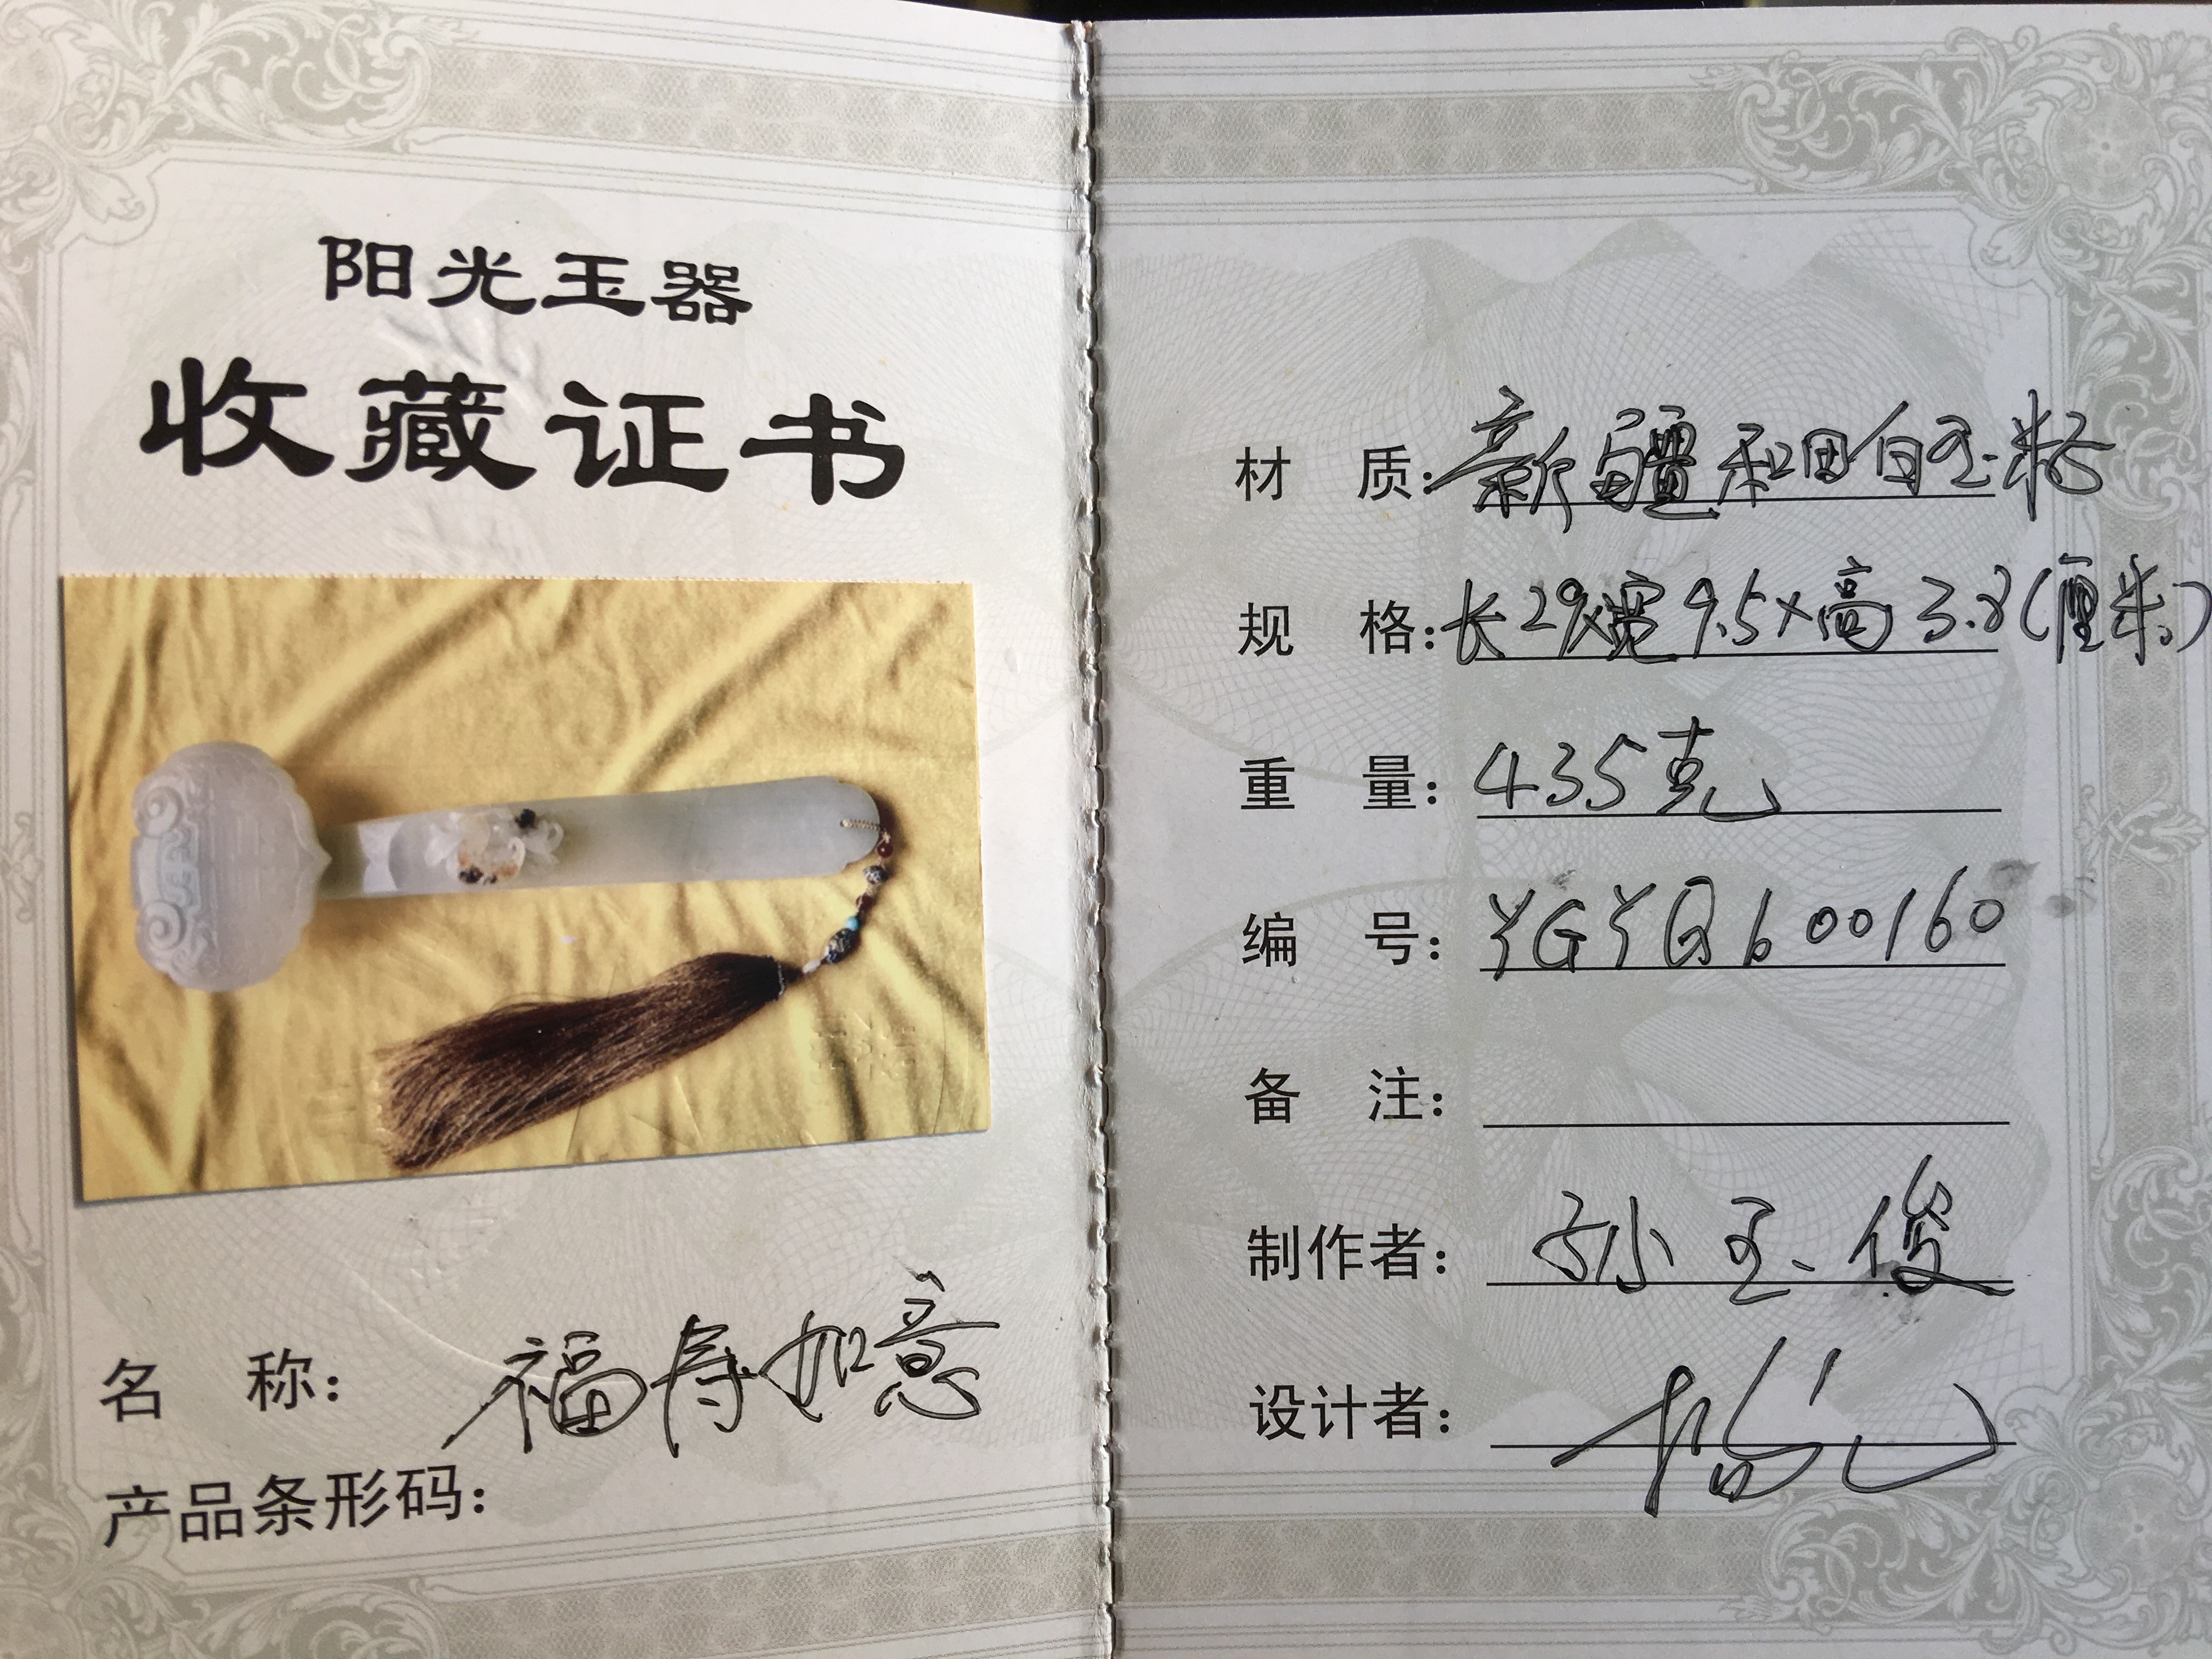 阳光玉器
收藏证书
名 称：福寿如意
产品条形码：
材 质：新疆和田白玉籽
规 格：长29x宽9.5x高3.8(厘米)
重 量：435克
编 号：YGYQ600160
备 注：
制作者：孙玉俊
设计者：